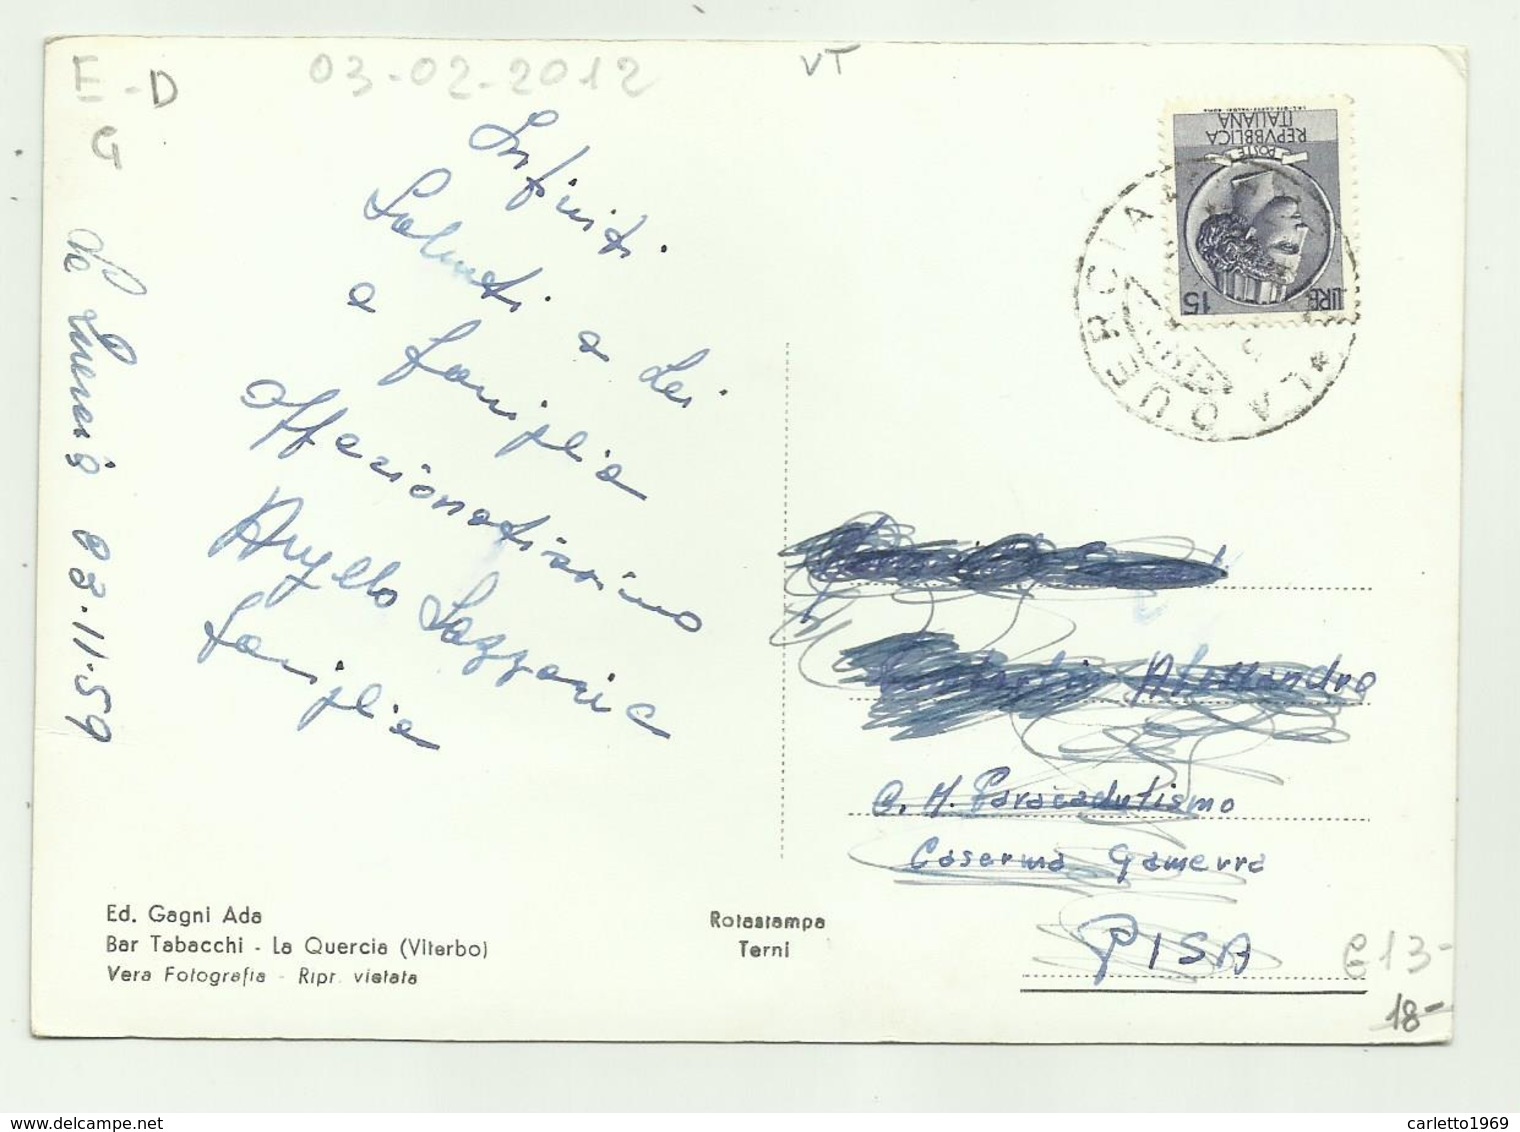 E-D
03-02-2012
VT
G
Infiniti
Saluti a Lei
e famiglia
affezionatissimo
Lazzaric
famiglia
La Quercia 03.11.59
POSTE
REPVBBLICA
ITALIANA
LIRE 15
LA QUERCIA
Alessandro
C. M. Paracadutismo
Caserma Gamerra
PISA
Ed. Gagni Ada
Bar Tabacchi - La Quercia (Viterbo)
Vera Fotografia - Ripr. vietata
Rotastampa
Terni
€13-
18-
carletto1969